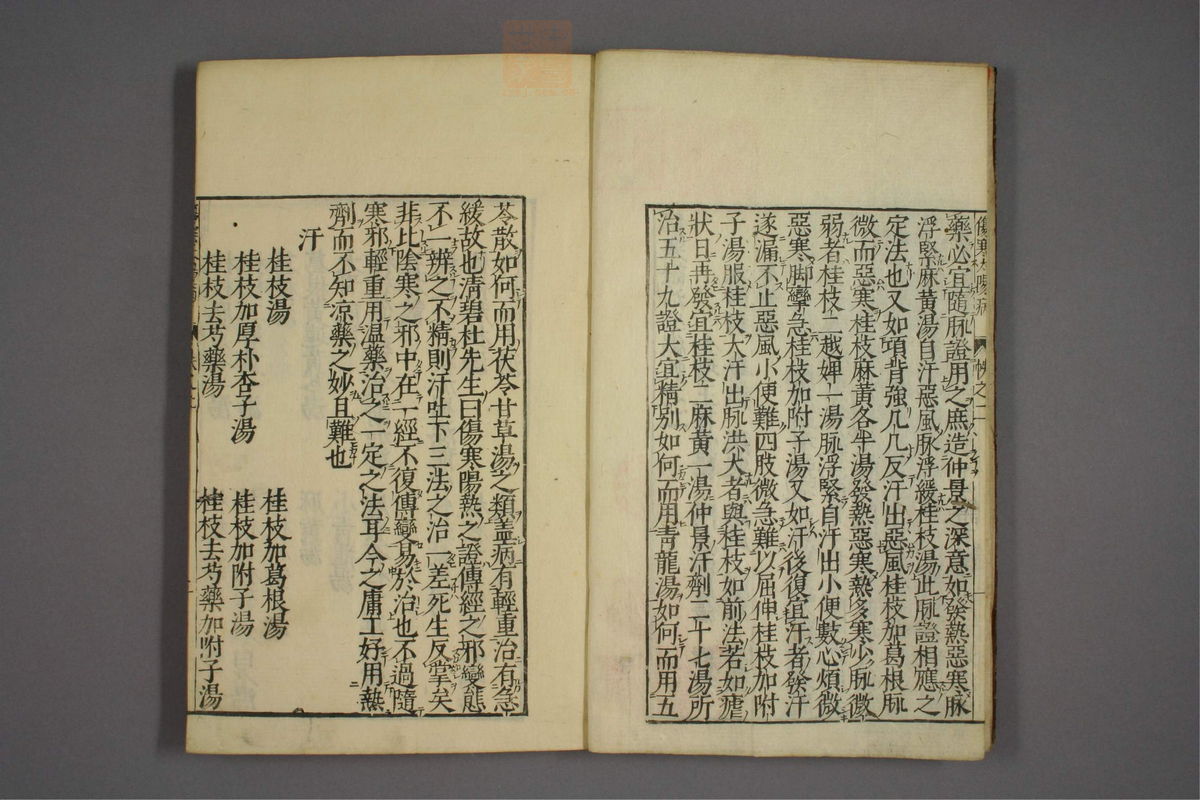 藥必宜隨脉證用之庶造仲景之深意如發熱惡寒脉
浮緊麻黄湯自汗惡風脉浮緩桂枝湯此脉證相應之
定法也又如項背強几几反汗出惡風桂枝加葛根脉
微而惡寒桂枝麻黄各半湯發熱惡寒熱多寒少脉微
弱者桂枝二越婢一湯脉浮緊自汗出小便數心煩微
惡寒脚攣急桂枝加附子湯又如汗後復宜汗者發汗
遂漏不止惡風小便難四肢微急難以屈伸桂枝加附
子湯服桂枝大汗出脉洪大者與桂枝如前法若如瘧
狀日再發宜桂枝二麻黄一湯仲景汗劑二十七湯所
治五十九證大宜精別如何而用青龍湯如何而用五
苓散如何而用茯苓甘草湯之類盖病有輕重治有急
緩故也清碧杜先生曰傷寒陽熱之證傳經之邪變態
不一辨之不精則汗吐下三法之治一差死生反掌矣
非比陰寒之邪中在一經不復傳變易於治也不過隨
寒邪輕重用温藥治之一定之法耳今之庸工好用熱
劑而不知凉藥之妙且難也
汗
桂枝湯 桂枝加葛根湯
桂枝加厚朴杏子湯 桂枝加附子湯
桂枝去芍藥湯 桂枝去芍藥加附子湯